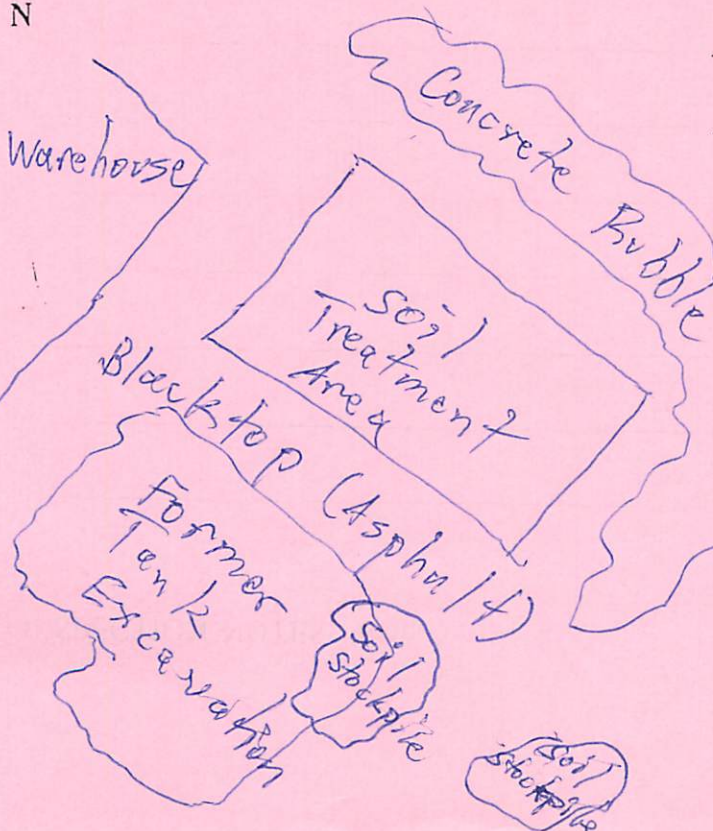 N
Concrete Rubble
Warehouse
Soil
Treatment
Area
Blacktop (Asphalt)
Former
Tank
Excavation
Soil
Stockpile
Soil
Stockpile